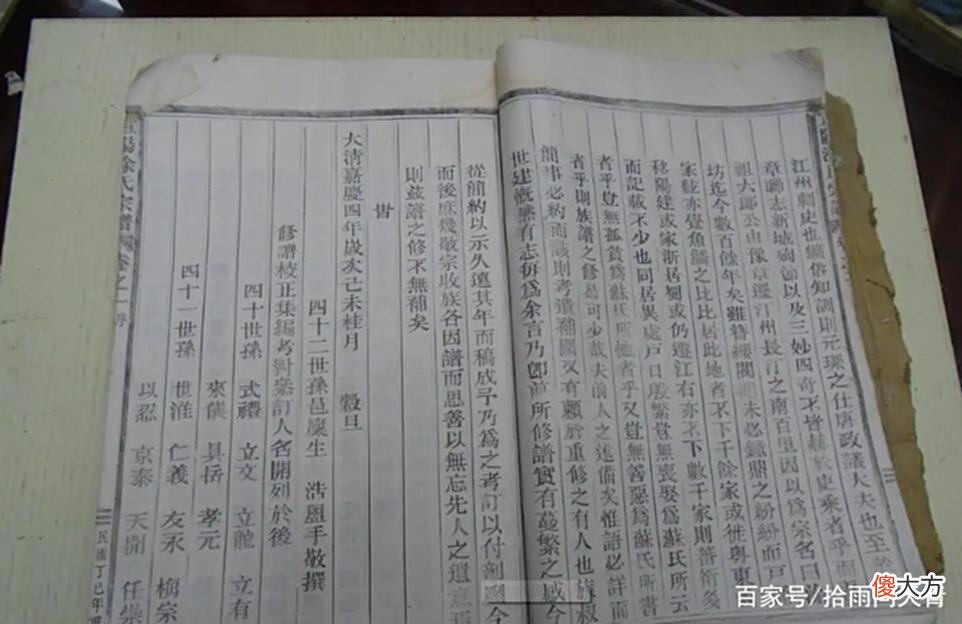 江州刺史也
俗知調則元瑧之仕唐政議大夫也至
章聯志新城
節以及三妙四奇不皆赫於史乘者乎而
祖大郎公由豫章遷汀州長汀之南百里因以為宗名曰
坊迄今數百餘年矣雖簪纓閥
未必鐘鼎之紛紛而戸
家絃亦覺魚鱗之比比居此地者不下千餘家或徙粤東
移陽建或家浙居蜀或仍遷江右亦不下數千家則普衍㚆
而記載不少也同居異處戸口殷繁豈無喪娶為蘇氏所云
者乎豈無孤貧為蘇氏所恤者乎又豈無善惡為蘇氏所書
者乎則族譜之修曷可少哉夫前人之述備矣惟譜必詳而
簡事必約而該則考遺補闕又有賴於重修之有人也族叔
世建慨然有志每為余言乃卽前所修譜實有蔓繁之感今
從簡約以示久遠其年而稿成予乃為之考訂以付剞劂今
而後庶幾敬宗收族各因譜而思善以無忘先人之遺
則兹譜之修不無補矣
旹
大清嘉慶四年歲次己未桂月 穀旦
四十二世孫邑廩生 浩盥手敬撰
修譜校正集編考對衆訂人名開列於後
四十世孫 式禮 立文 立龍 立有
來儀 具岳 孝元
四十一世孫 世淮 仁義 友永 梅宗
以忍 京泰 天開 任崇
徐氏宗譜 卷之一 序
民國丁巳年
百家号/拾雨
傻大方